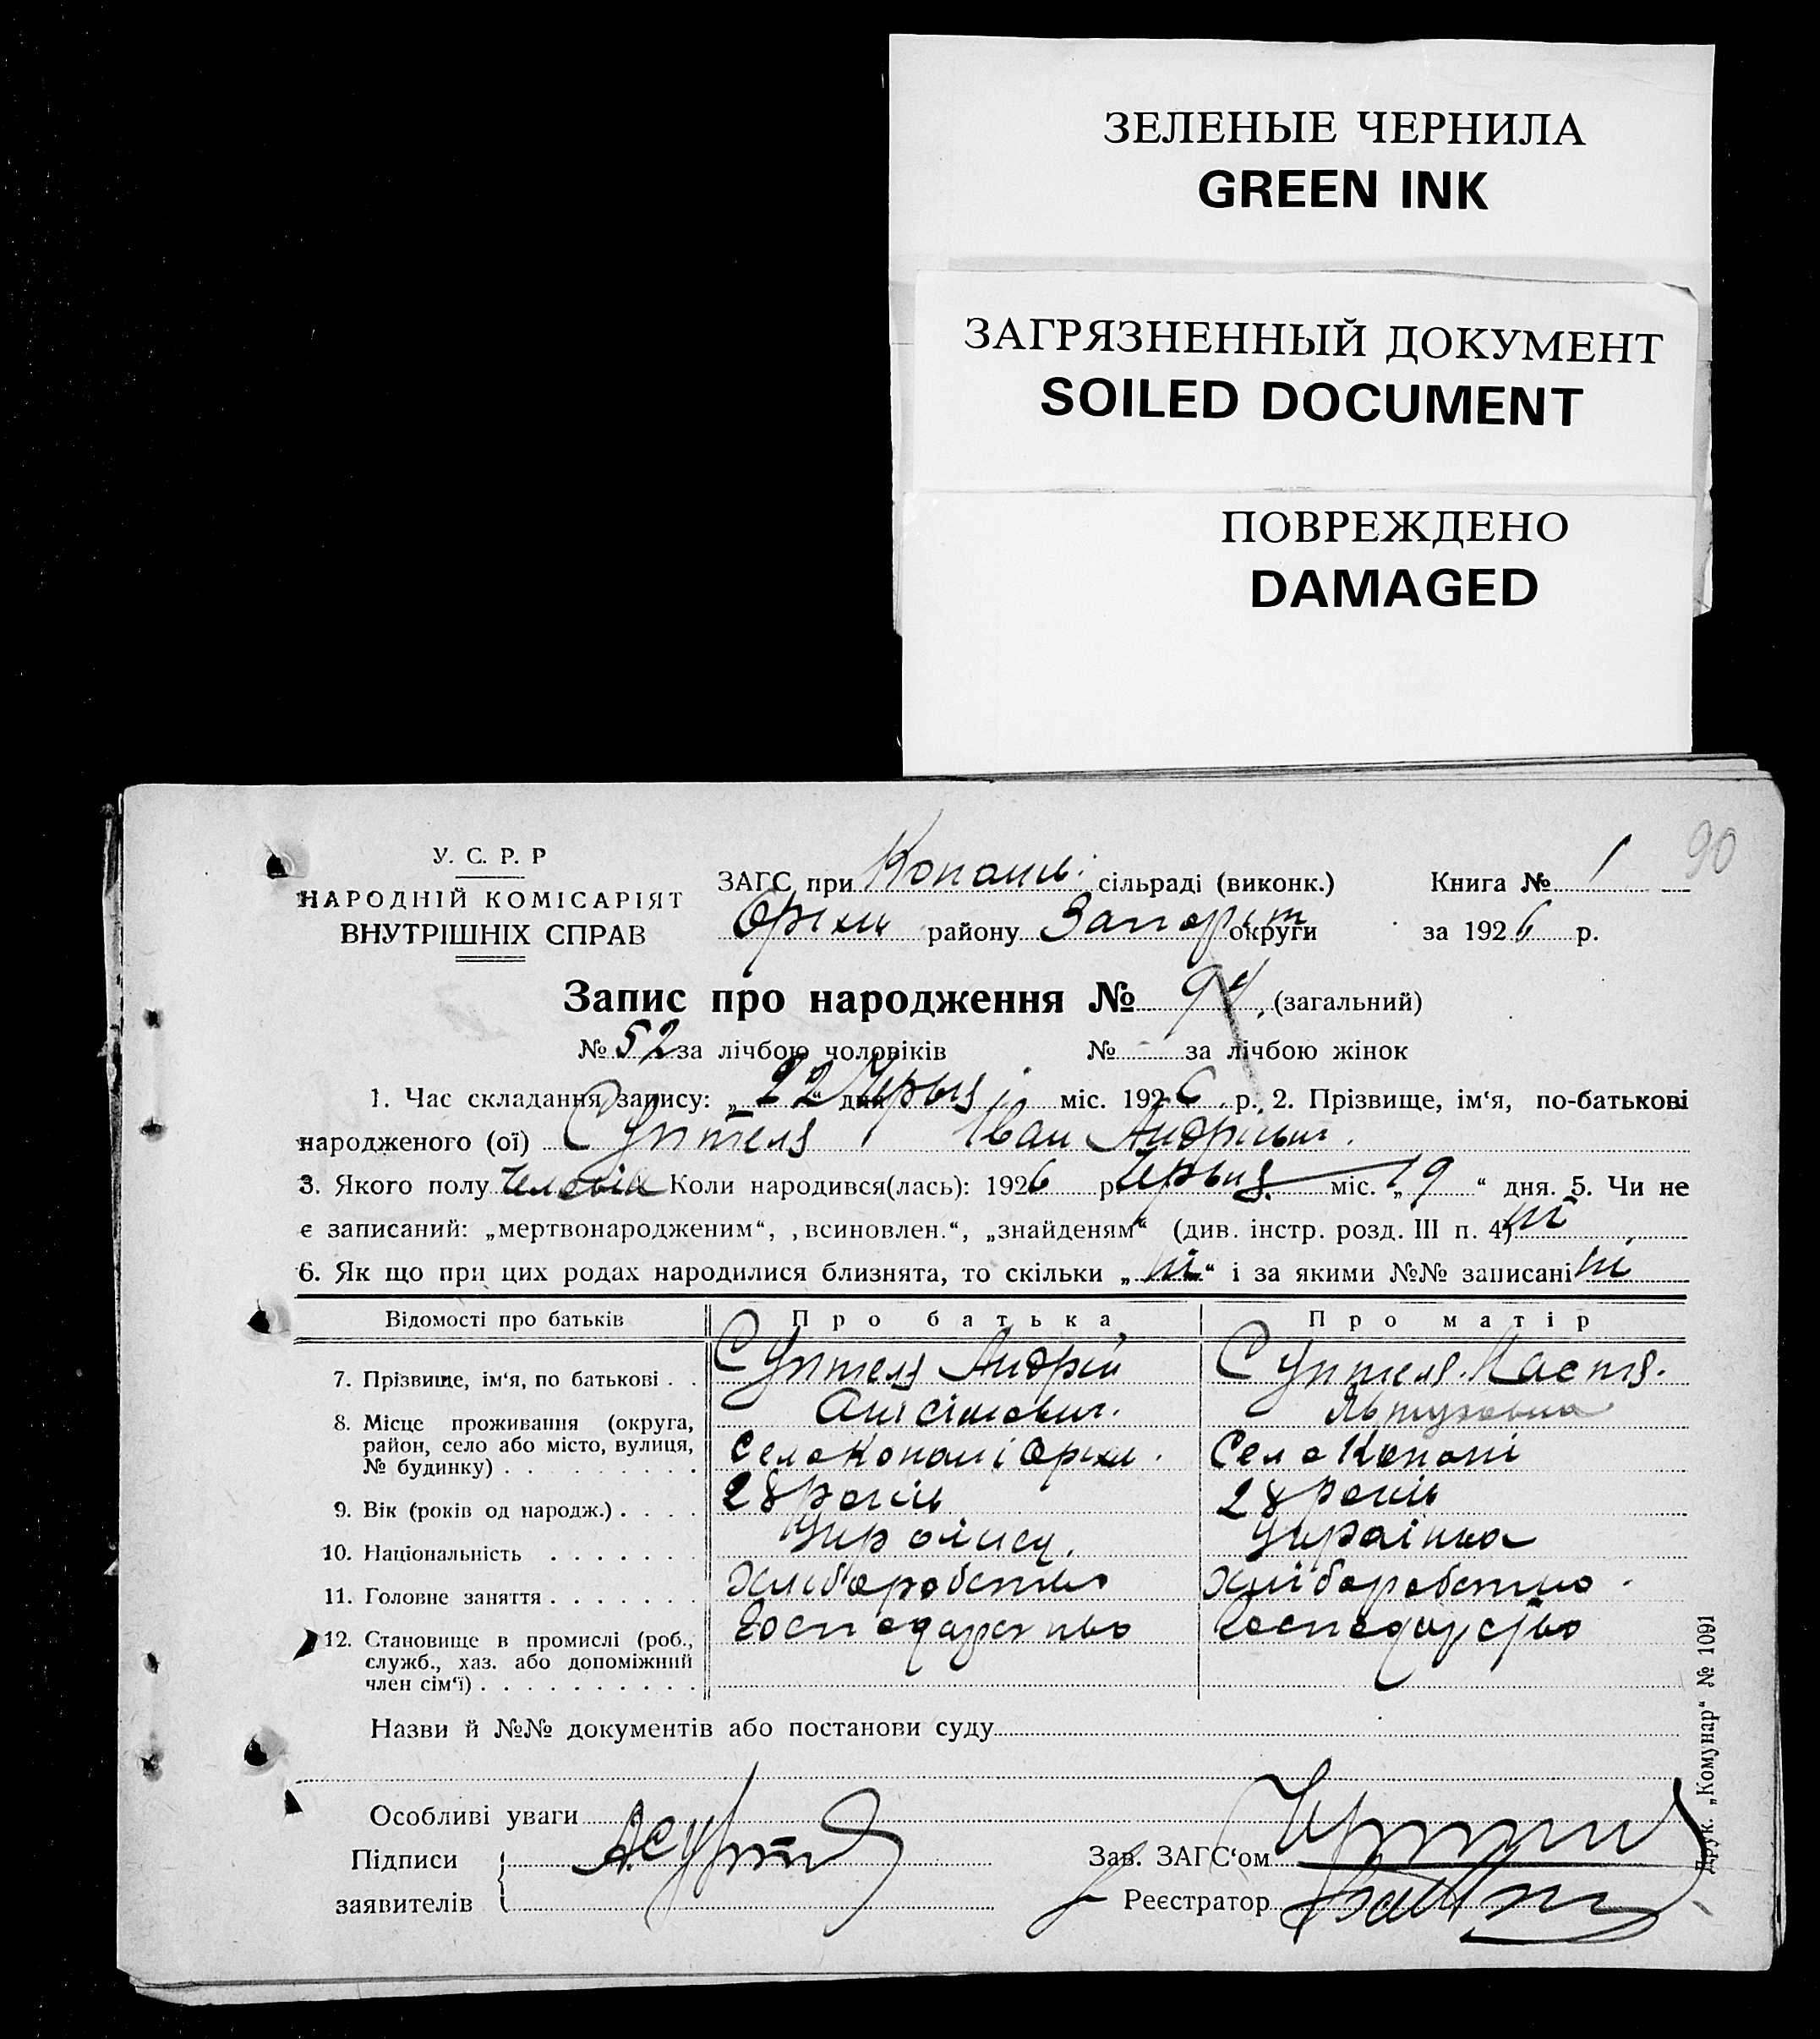 ЗЕЛЕНЫЕ ЧЕРНИЛА
GREEN INK
ЗАГРЯЗНЕННЫЙ ДОКУМЕНТ
SOILED DOCUMENT
ПОВРЕЖДЕНО
DAMAGED
90
У. С. Р. Р
НАРОДНІЙ КОМІСАРІЯТ
ВНУТРІШНІХ СПРАВ
ЗАГС при Копанів. сільраді (виконк.) Книга № 1
Оріхів району Запоріж округи за 1926 р.
Запис про народження № 94 (загальний)
№ 52 за лічбою чоловіків № - за лічбою жінок
1. Час складання запису: „22“ дня Червня міс. 1926 р. 2. Прізвище, ім‘я, по-батькові
народженого (ої) Суптеля Іван Андрієвич.
3. Якого полу Чоловік Коли народився(лась): 1926 р. Червня міс. „19“ дня. 5. Чи не
є записаний: „мертвонародженим“, „всиновлен.“, „знайденям“ (див. інстр. розд. III п. 4) ні
6. Як що при цих родах народилися близнята, то скільки „ні“ і за якими №№ записані ні
Відомості про батьків Про батька Про матір
7. Прізвище, ім‘я, по батькові . . Суптеля Андрій Суптеля Настя.
Анісімович.
8. Місце проживання (округа,
район, село або місто, вулиця,
№ будинку) . . . . . . . . Село Копані Оріхів. Село Копані
9. Вік (років од народж.) . . . . 28 років 28 років
10. Національність . . . . . . . Українец. Українка
11. Головне заняття . . . . . . . Хліборобство Хліборобство.
12. Становище в промислі (роб., Господарство Господарство
служб., хаз. або допоміжний
член сім‘ї) . . . . . . . . . .
Назви й №№ документів або постанови суду
Особливі уваги
Підписи
заявителів
Зав. ЗАГС‘ом
Реєстратор
Друк. „Комунар“ № 1091